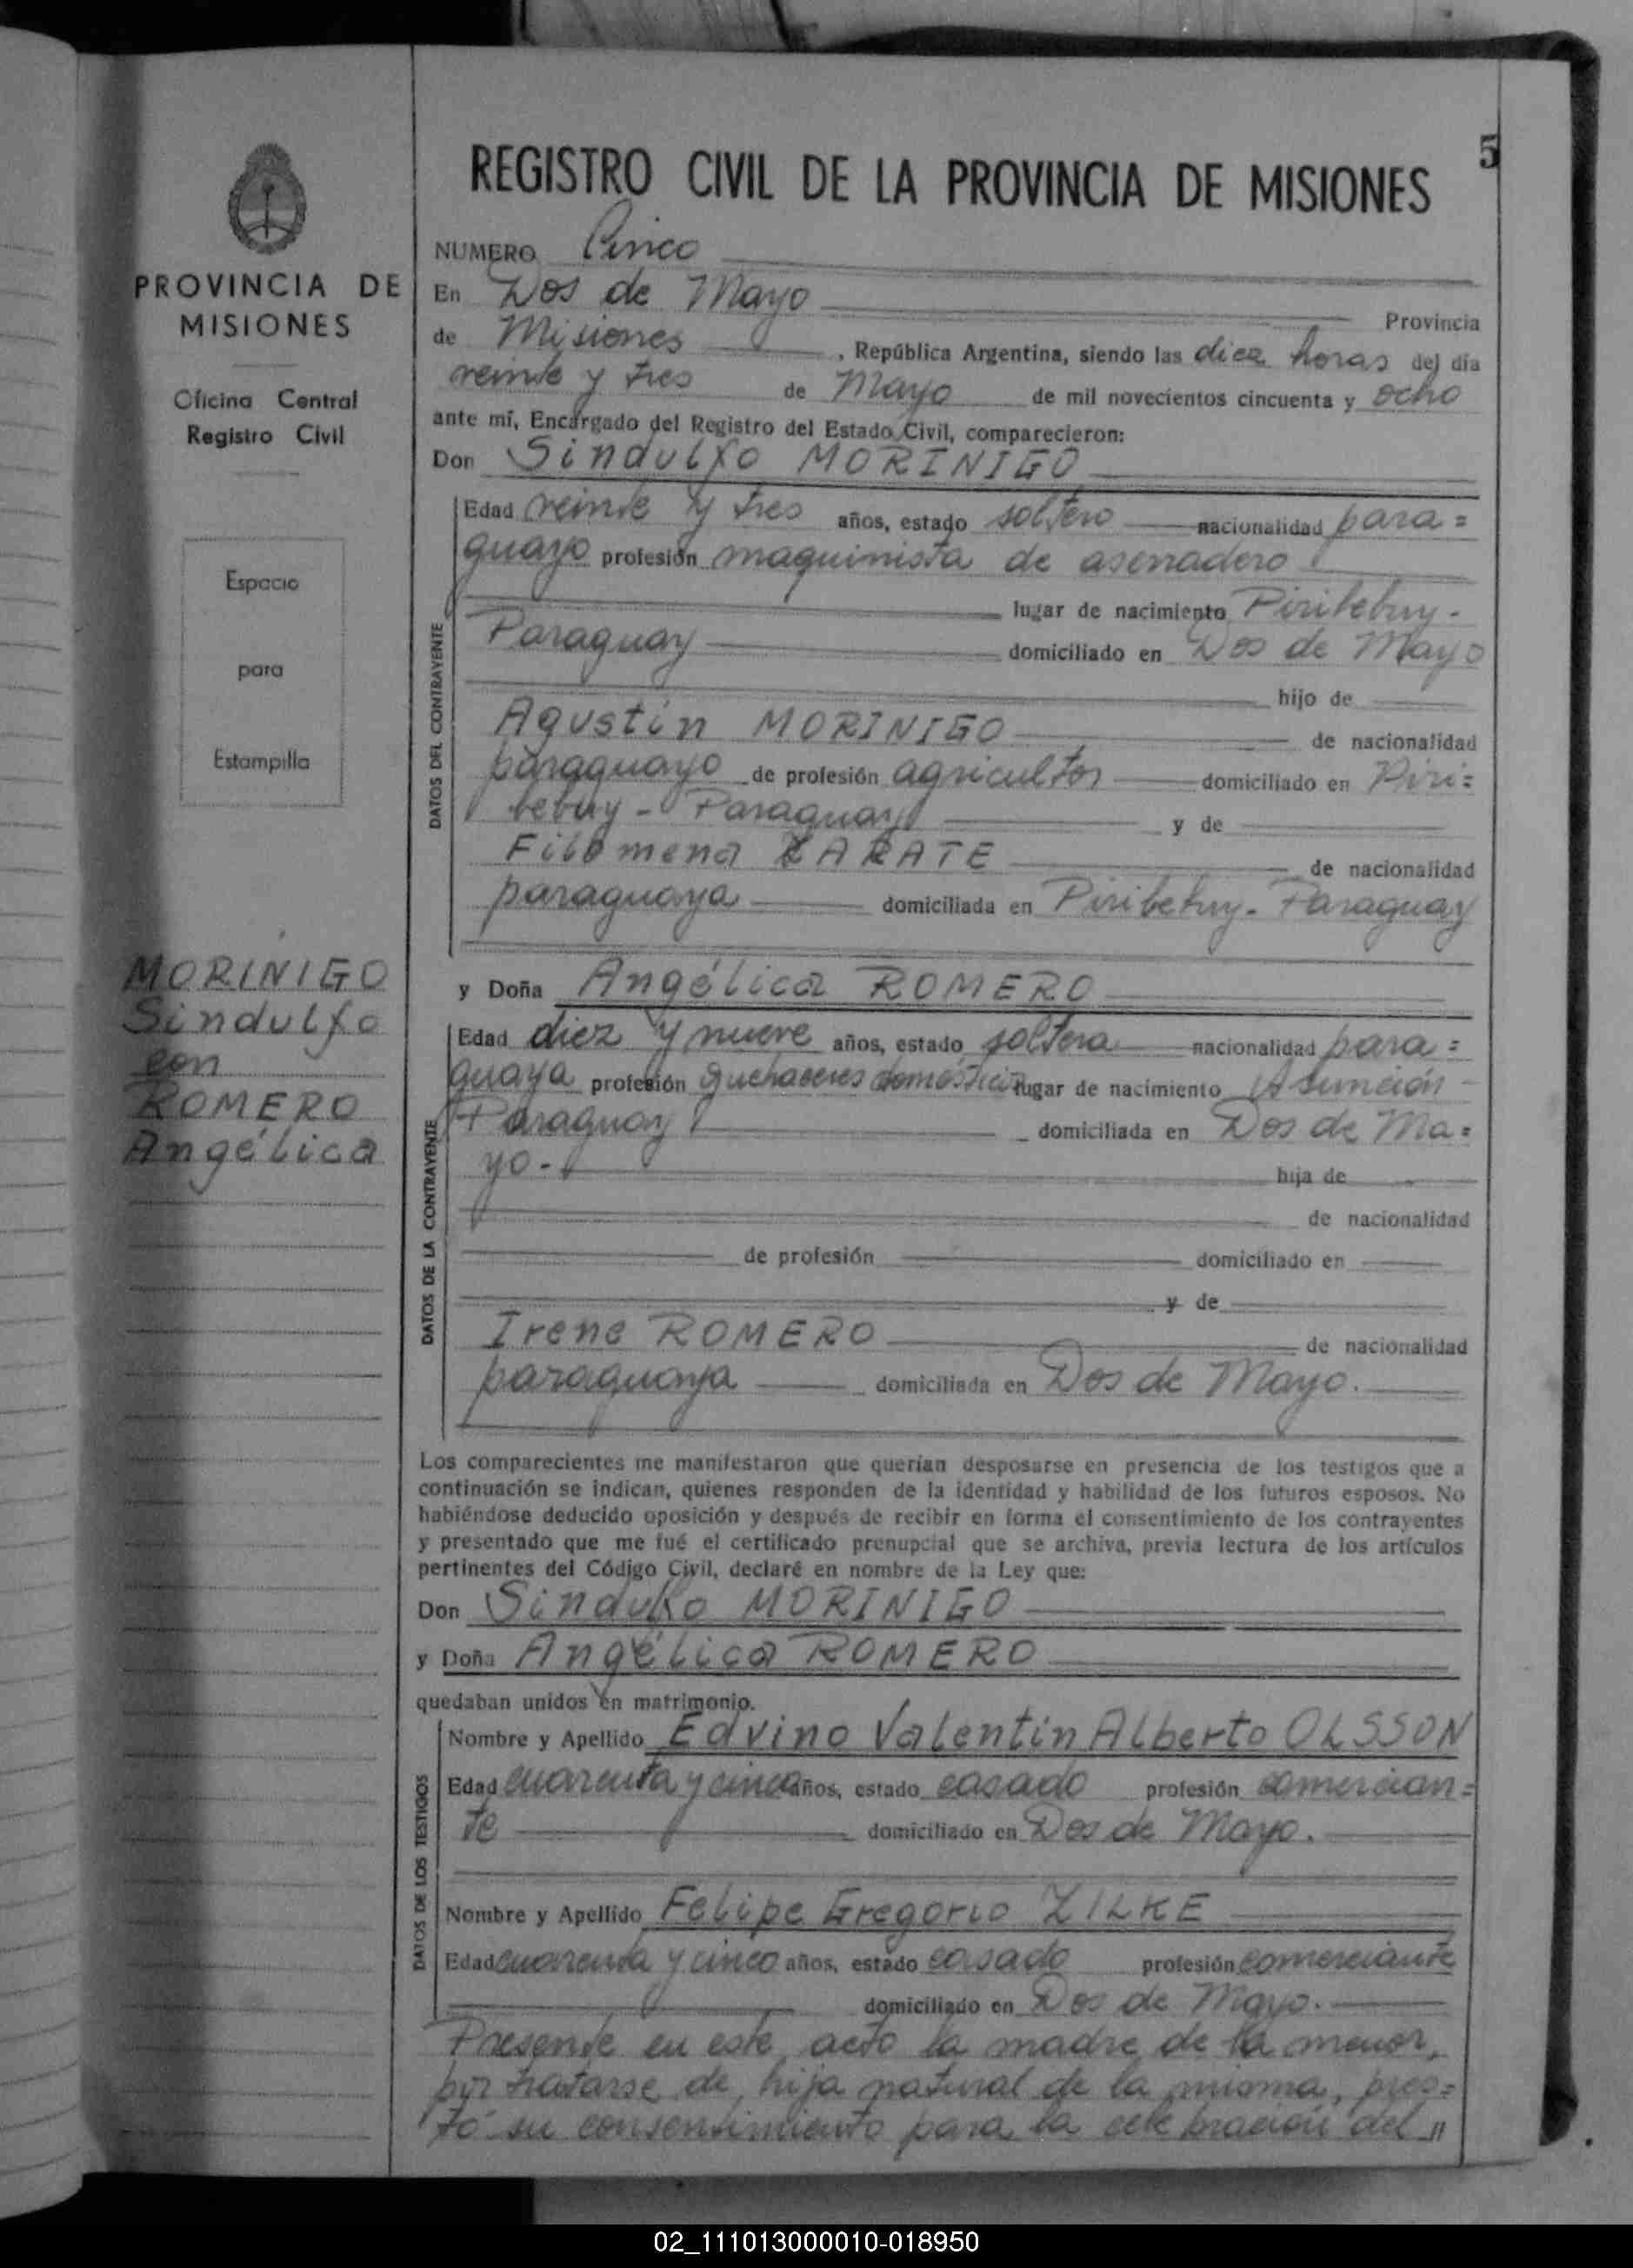 5
REGISTRO CIVIL DE LA PROVINCIA DE MISIONES
PROVINCIA DE
MISIONES
Oficina Central
Registro Civil
Espacio
para
Estampilla
MORINIGO
Sindulfo
con
ROMERO
Angélica
NUMERO Cinco
En Dos de Mayo Provincia
de Misiones , República Argentina, siendo las diez horas del día
veinte y tres de Mayo de mil novecientos cincuenta y ocho
ante mí, Encargado del Registro del Estado Civil, comparecieron:
Don Sindulfo MORINIGO
DATOS DEL CONTRAYENTE
Edad veinte y tres años, estado soltero nacionalidad para=
guayo profesión maquinista de aserradero
lugar de nacimiento Piribebuy-
Paraguay domiciliado en Dos de Mayo
hijo de
Agustín MORINIGO de nacionalidad
paraguayo de profesión agricultor domiciliado en Piri=
bebuy - Paraguay y de
Filomena ZARATE de nacionalidad
paraguaya domiciliada en Piribebuy- Paraguay
y Doña Angélica ROMERO
DATOS DE LA CONTRAYENTE
Edad diez y nueve años, estado soltera nacionalidad para=
guaya profesión quehaceres domésticos lugar de nacimiento Asunción -
Paraguay domiciliada en Dos de Ma=
yo.- hija de
de nacionalidad
de profesión domiciliado en
y de
Irene ROMERO de nacionalidad
paraguaya domiciliada en Dos de Mayo.
Los comparecientes me manifestaron que querían desposarse en presencia de los testigos que a
continuación se indican, quienes responden de la identidad y habilidad de los futuros esposos. No
habiéndose deducido oposición y después de recibir en forma el consentimiento de los contrayentes
y presentado que me fué el certificado prenupcial que se archiva, previa lectura de los artículos
pertinentes del Código Civil, declaré en nombre de la Ley que:
Don Sindulfo MORINIGO
y Doña Angélica ROMERO
quedaban unidos en matrimonio.
DATOS DE LOS TESTIGOS
Nombre y Apellido Edvino Valentín Alberto OLSSON
Edad cuarenta y cinco años, estado casado profesión comercian=
te domiciliado en Dos de Mayo.
Nombre y Apellido Felipe Gregorio ZILKE
Edad cuarenta y cinco años, estado casado profesión comerciante
domiciliado en Dos de Mayo.
Presente en este acto la madre de la menor,
por tratarse de hija natural de la misma, pres=
tó su consentimiento para la celebración del "
02_111013000010-018950